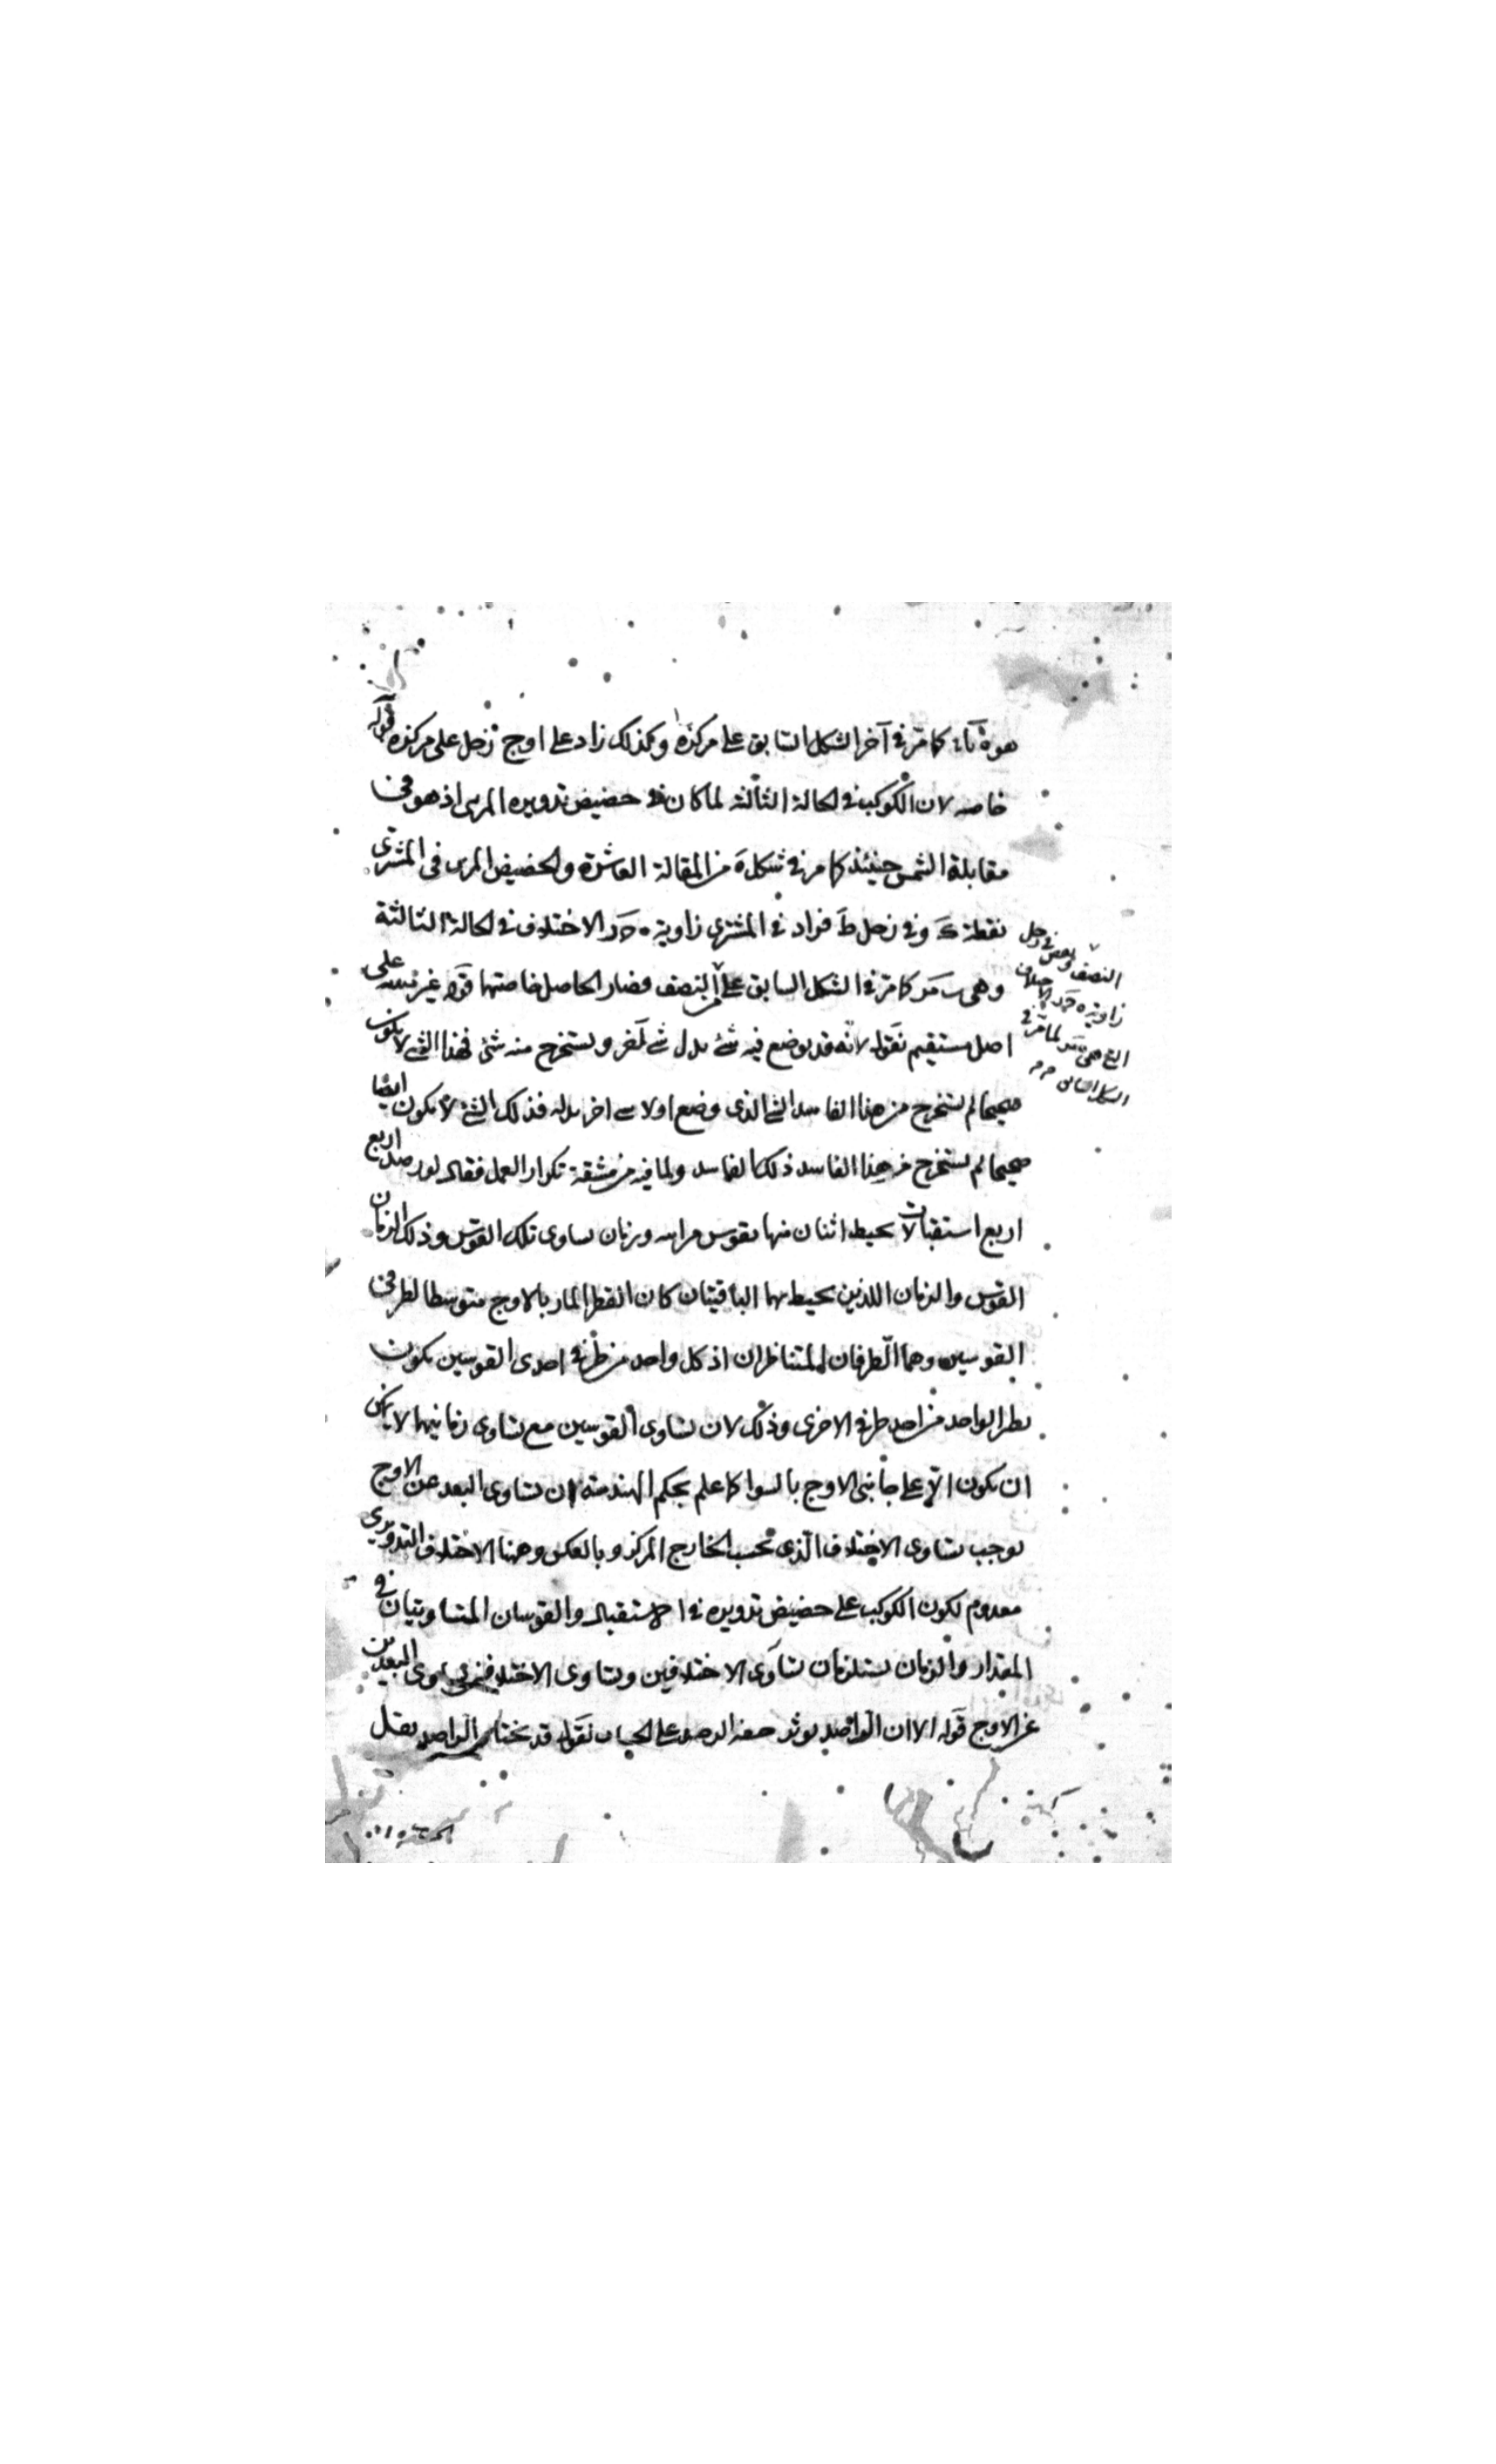 هوة كما مرّ في آخر الشكل السابق على مركزه وكذلك زاد على اوج زحل على مركزه قوله
خاصه لان الكوكب في الحالة الثالثة لما كان في حضيض تدويره المرى اذ هو في
مقابلة الشمس حينئذ كما مر في شكل ه من المقالة العاشرة والحضيض المرى في المشترى
نقطة ك وفي زحل ط فزاد في المشترى زاوية ه حد الاختلاف في الحالة الثالثة
وهي كما مرّ في الشكل السابق على النصف فصار الحاصل خاصتها قوله غير مبنيه على
اصل مستقيم نقول لانه قد يوضع فيه شئ بدل شئ آخر ويستخرج منه شئ فهذا الشئ لا يكون
صحيحا لم يستخرج من هذا الفاسد الشئ الذى وضع اولا شئ اخر بدله فذلك الشئ لا يكون ايضا
صحيحا لم يستخرج من هذا الفاسد ذلك الفاسد ولما فيه من مشقة تكرار العمل فقال لو رصد اربع
اربع استقبالات يحيط اثنان منها بقوس مراىه وزمان يساوى تلك القوس وذلك الزمان
القوس والزمان اللذين يحيط بهما الباقيتان كان القطر المار بالاوج متوسطا لطرفى
القوسين وهما الطرفان المتناظران اذ كل واحد من طرفى احدى القوسين يكون
نظير الواحد من احد طرفى الاخرى وذلك لان تساوى القوسين مع تساوى زمانيهما لا يمكن
ان يكون الّا على جانبى الاوج بالسوا كما علم بحكم الهندسة ان تساوى البعد عن الاوج
يوجب تساوى الاختلاف الذى بحسب الخارج المركز وبالعكس وههنا الاختلاف التدويرى
معدوم لكون الكوكب على حضيض تدويره في الاستقبال والقوسان المتساويتان في
المقدار والزمان يستلزمان تساوى الاختلافين وتساوى الاختلافين تساوى البعدين
عن الاوج قوله الا ان الراصد يوثر الرصد على الحساب نقول قد يختار الراصد بفعل
النصف ونقص في زحل
زاوية ه حد الاختلاف
التى هي لما مرّ في
الشكل السابق